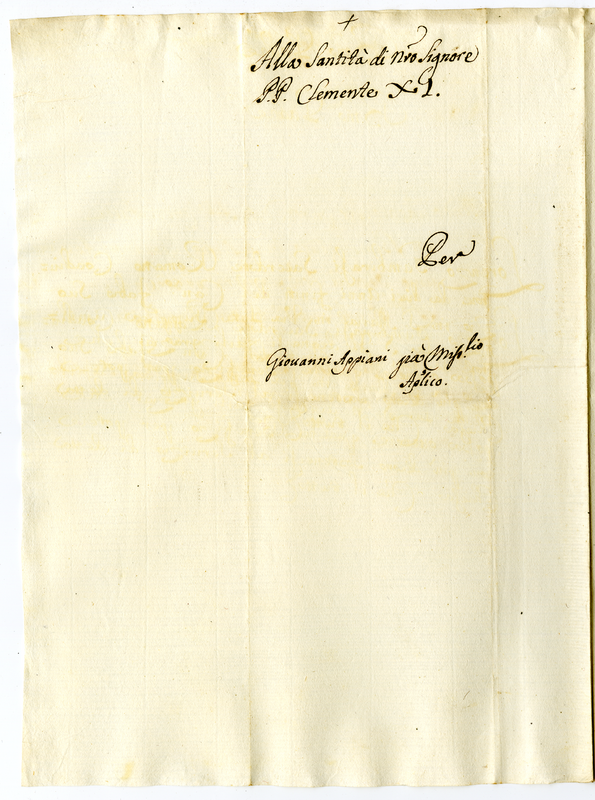 +
Alla Santità di Nr̃o Signore
P.P. Clemente XI.
Per
Giovanni Appiani già Miss.rio
Ap̃lico.